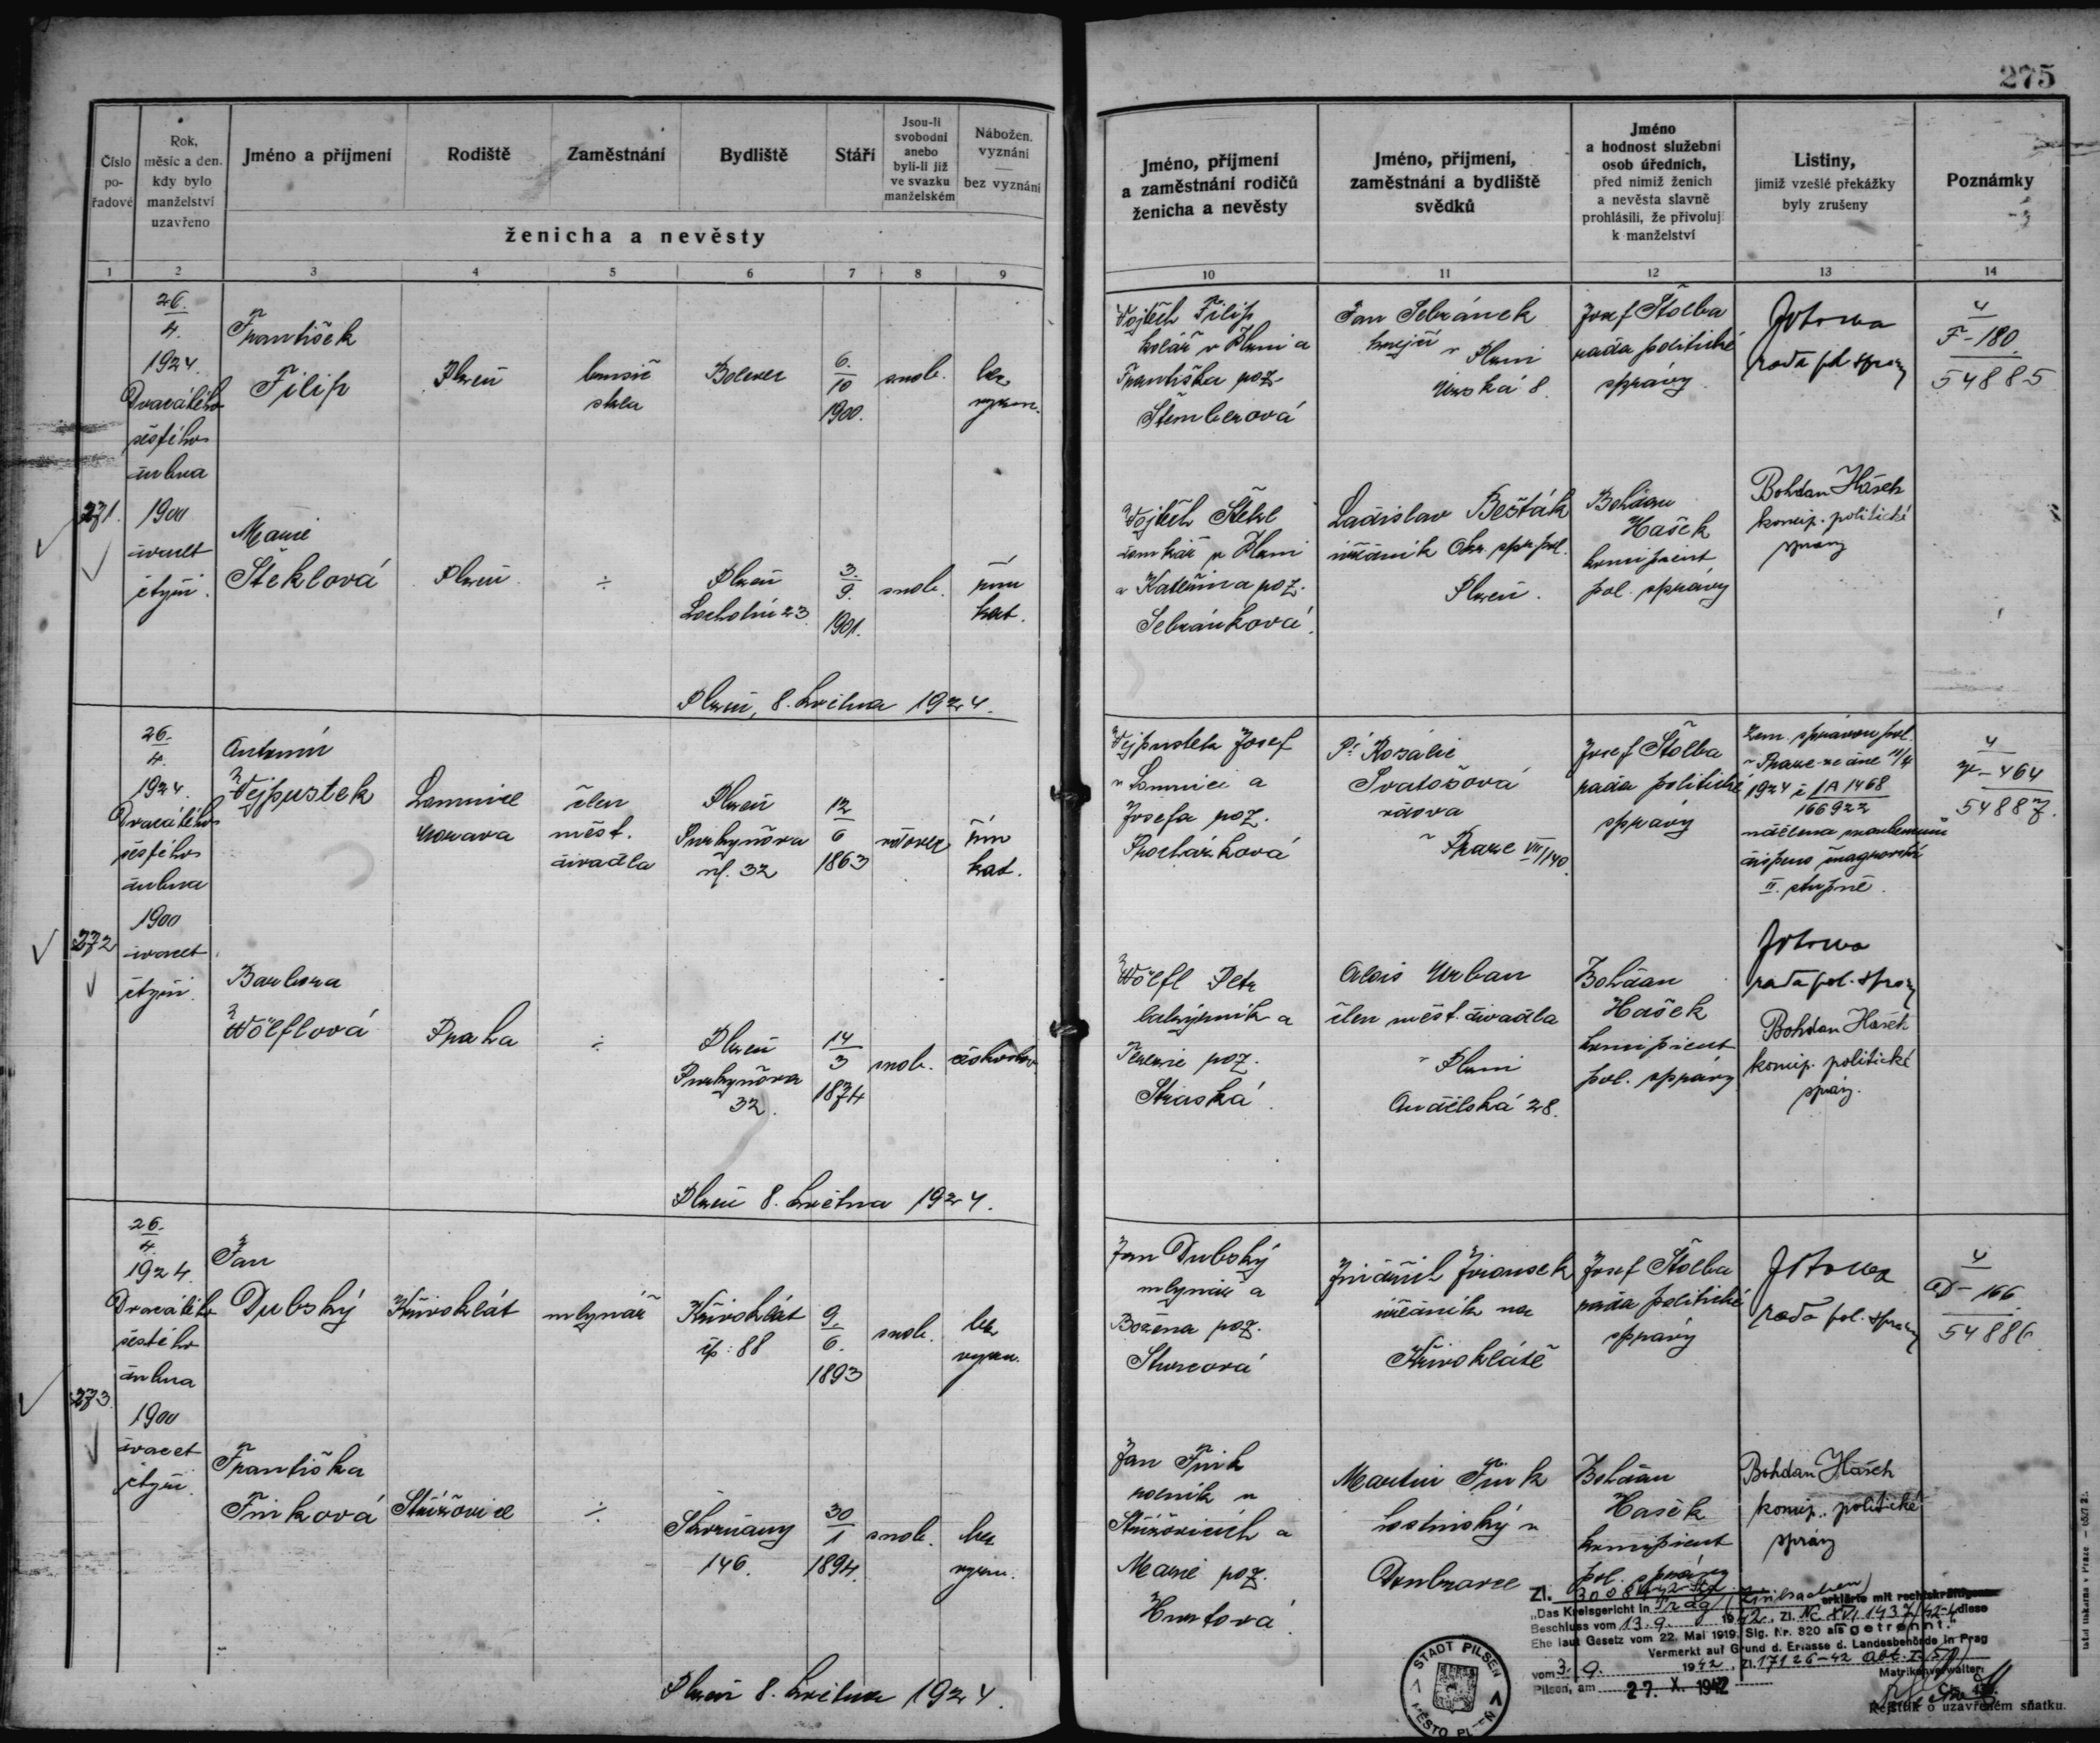 275
Číslo pořadové
Rok, měsíc a den, kdy bylo manželství uzavřeno
Jméno a příjmení
Rodiště
Zaměstnání
Bydliště
Stáří
Jsou-li svobodní anebo byli-li již ve svazku manželském
Nábožen. vyznání — bez vyznání
ženicha a nevěsty
Jméno, příjmení a zaměstnání rodičů ženicha a nevěsty
Jméno, příjmení, zaměstnání a bydliště svědků
Jméno a hodnost služební osob úředních, před nimiž ženich a nevěsta slavně prohlásili, že přivolují k manželství
Listiny, jimiž vzešlé překážky byly zrušeny
Poznámky
1 2 3 4 5 6 7 8 9 10 11 12 13 14
271.
26.
4.
1924.
Dvacátého
šestého
dubna
1900
dvacet
čtyři.
František
Filip
Plzeň
brusič
skla
Bolevec
6.
10
1900.
svob.
bez
vyzn.
Vojtěch Filip
kolář v Plzni a
Františka roz.
Štemberová
Jan Sebránek
krejčí v Plzni
Úzská 8.
Josef Štolba
rada politické
správy
rada pol. správy
4
F-180.
54885
Marie
Šteklová
Plzeň
÷
Plzeň
Lochotín 23
3.
9.
1901.
svob.
řím
kat.
Vojtěch Štekl
domkář v Plzni
a Kateřina roz.
Sebránková.
Ladislav Bešťák
úředník Okr. spr. pol.
Plzeň.
Bohdan
Hašek
koncipient
pol. správy
Bohdan Hašek
koncip. politické
správy
Plzeň, 8. května 1924.
272
26.
4.
1924.
Dvacátého
šestého
dubna
1900
dvacet
čtyři.
Antonín
Vejpustek
Lomnice
Morava
člen
měst.
divadla
Plzeň
Purkyňova
ul. 32
12
6
1863
vdovec
řím
kat.
Vejpustek Josef
v Lomnici a
Josefa roz.
Procházková
Pí Rozálie
Svatošová
vdova
v Praze VII/140.
Josef Štolba
rada politické
správy
Zem. správou pol.
v Praze ze dne 11/4
1924 č. 1A 1468
166922
udělena manželům
dispens švagrovství
II. stupně.
rada pol. správy
4
V-464
54887.
Barbora
Wölflová
Praha
÷
Plzeň
Purkyňova
32.
14
3
1874
svob.
českoslov.
Wölfl Petr
a
Terezie roz.
Straská.
Alois Urban
člen měst. divadla
v Plzni
Andělská 28.
Bohdan
Hašek
koncipient
pol. správy
Bohdan Hašek
koncip. politické
správy.
Plzeň 8. května 1924.
273.
26.
4.
1924.
Dvacátého
šestého
dubna
1900
dvacet
čtyři.
Jan
Dubský
Křivoklát
mlynář
Křivoklát
čp: 88
9.
6.
1893
svob.
bez
vyzn.
Jan Dubský
mlynář a
Božena roz.
Jindřich
úředník na
Křivoklátě
Josef Štolba
rada politické
správy
rada pol. správy
4
D-166.
54886.
Františka
Finková
Střížovice
÷
Skvrňany
146.
30
1
1894.
svob.
bez
vyzn.
Jan Fink
rolník v
Střížovicích a
Marie roz.
Hurtová.
Martin Fink
hostinský v
Doubravce
Bohdan
Hašek
koncipient
pol. správy
Bohdan Hašek
koncip. politické
správy
Plzeň 8. května 1924.
Zl.
„Das Kreisgericht in Prag (Zivilsachen) erklärte mit rechtskräftigem
Beschluss vom 13. 9. 1942, Zl. Nc XVI 1437/42-4 diese
Ehe laut Gesetz vom 22. Mai 1919, Slg. Nr. 320 als getrennt."
Vermerkt auf Grund d. Erlasse d. Landesbehörde in Prag
vom 3. 9. 1942, Zl. 17126-42
Matrikenverwalter:
Pilsen, am 27. X. 1942
STADT PILSEN
MĚSTO PLZEŇ
Rejstřík o uzavřeném sňatku.